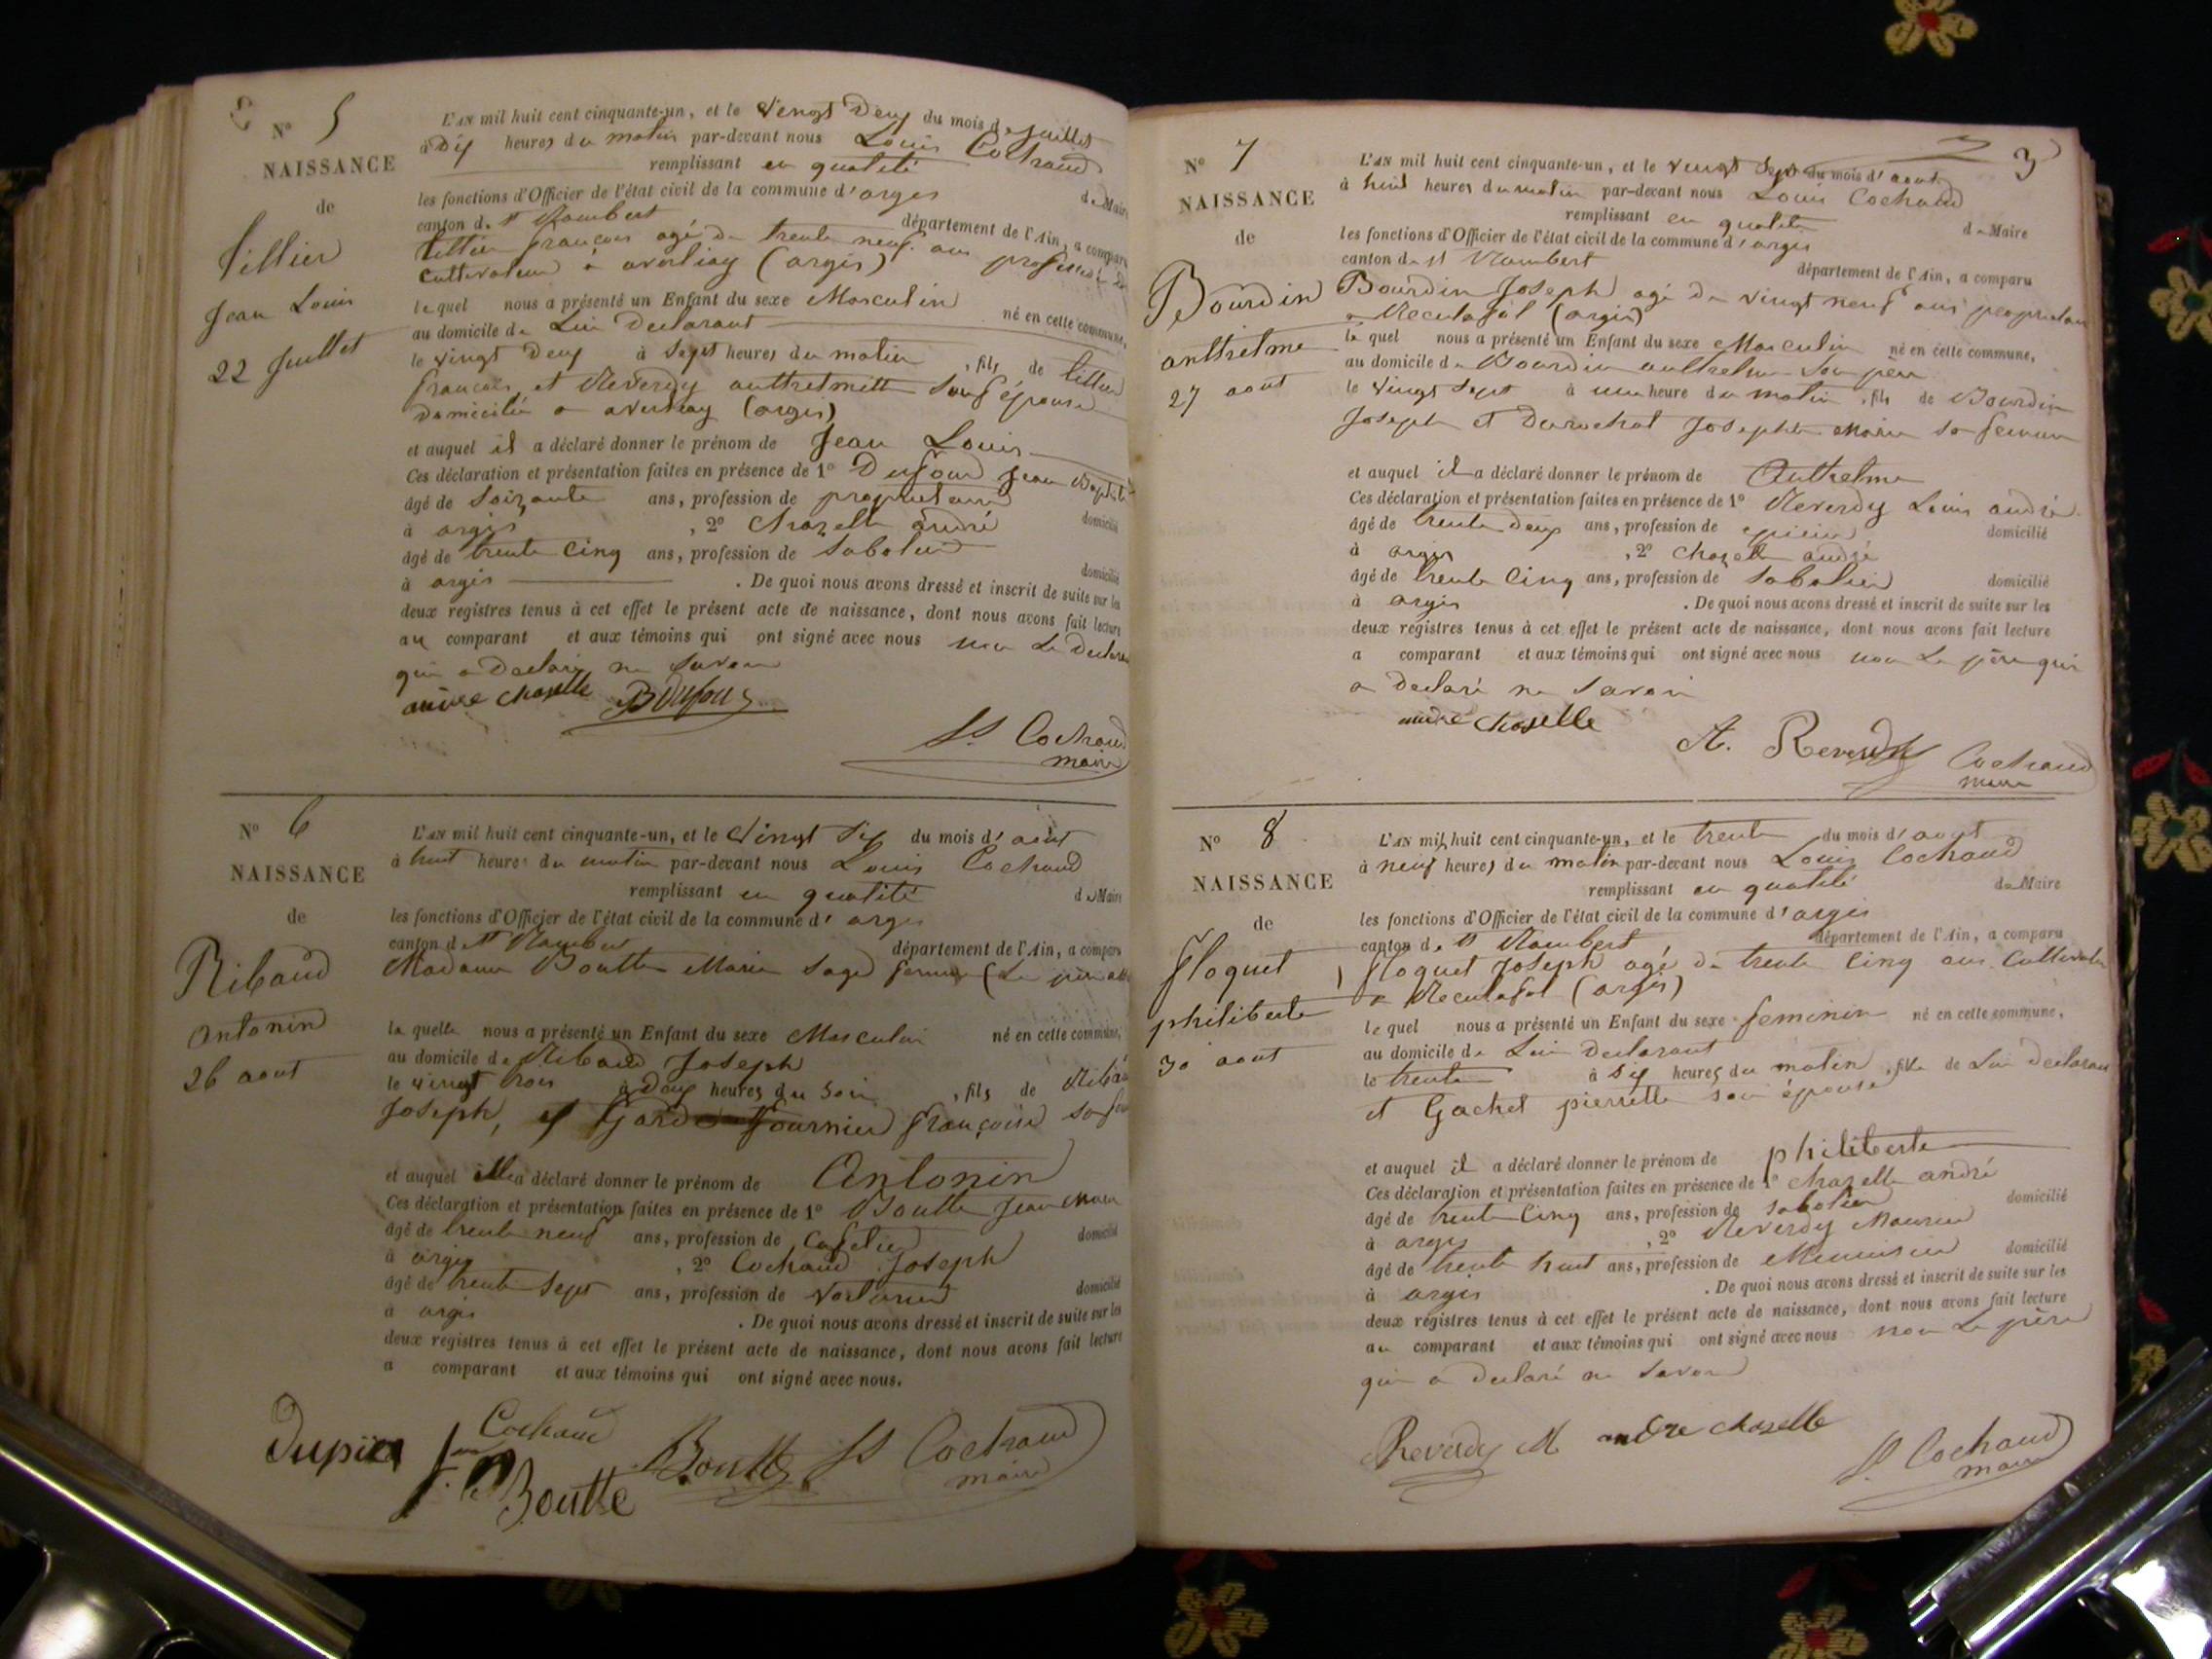 N° 5
NAISSANCE
de
Tillier
Jean Louis
22 Juillet
L'AN mil huit cent cinquante-un, et le vingt deux du mois de juillet
à dix heures du matin par-devant nous Louis Cochaud
remplissant en qualité de Maire
les fonctions d'Officier de l'état civil de la commune d'argis
canton de St Rambert département de l'Ain, a comparu
tillier françois agé de trente neuf ans profession de
Cultivateur à averliay (argis)
lequel nous a présenté un Enfant du sexe Masculin né en cette commune,
au domicile de Lui Declarant
le vingt deux à sept heures du matin, fils de tillier
françois et Reverdy anthelmette son épouse
domicilié a averliay (argis)
et auquel il a déclaré donner le prénom de Jean Louis
Ces déclaration et présentation faites en présence de 1° Dufour Jean Baptiste
âgé de soixante ans, profession de propriétaire domicilié
à argis, 2° Chazelle andré
âgé de trente cinq ans, profession de Sabotier domicilié
à argis. De quoi nous avons dressé et inscrit de suite sur les
deux registres tenus à cet effet le présent acte de naissance, dont nous avons fait lecture
au comparant et aux témoins qui ont signé avec nous non Le Declarant
qui a Declaré ne Savoir
andré chazelle BDufour
Ls Cochaud
maire
N° 6
NAISSANCE
de
Ribaud
Antonin
26 aout
L'AN mil huit cent cinquante-un, et le Vingt six du mois d'août
à huit heures du matin par-devant nous Louis Cochaud
remplissant en qualité de Maire
les fonctions d'Officier de l'état civil de la commune d'argis
canton de St Rambert département de l'Ain, a comparu
Madame Boutte Marie sage femme (Le père
laquelle nous a présenté un Enfant du sexe Masculin né en cette commune,
au domicile de Ribaud Joseph
le vingt trois à Deux heures du Soir, fils de Ribaud
Joseph, et Fournier françoise sa
et auquel elle a déclaré donner le prénom de Antonin
Ces déclaration et présentation faites en présence de 1° Boutte Jean Marie
âgé de trente neuf ans, profession de Cafetier domicilié
à argis, 2° Cochaud Joseph
âgé de trente Sept ans, profession de Voiturier domicilié
à argis. De quoi nous avons dressé et inscrit de suite sur les
deux registres tenus à cet effet le présent acte de naissance, dont nous avons fait lecture
a comparant et aux témoins qui ont signé avec nous.
Dupier Cochaud Boutte Ls Cochaud
Boutte maire
3
N° 7
NAISSANCE
de
Bourdin
anthelme
27 aout
L'AN mil huit cent cinquante-un, et le vingt Sept du mois d'aout
à huit heures du matin par-devant nous Louis Cochaud
remplissant en qualité de Maire
les fonctions d'Officier de l'état civil de la commune d'argis
canton de St Rambert département de l'Ain, a comparu
Bourdin Joseph agé de vingt neuf ans propriétaire
a Reculafol (argis)
lequel nous a présenté un Enfant du sexe Masculin né en cette commune,
au domicile de Bourdin anthelme Son père
le vingt Sept à une heure du matin, fils de Bourdin
Joseph et Derochat Josephte Marie sa femme
et auquel il a déclaré donner le prénom de Anthelme
Ces déclaration et présentation faites en présence de 1° Reverdy Louis andré
âgé de trente deux ans, profession de epicier domicilié
à argis, 2° Chazelle andré
âgé de trente Cinq ans, profession de Sabotier domicilié
à argis. De quoi nous avons dressé et inscrit de suite sur les
deux registres tenus à cet effet le présent acte de naissance, dont nous avons fait lecture
a comparant et aux témoins qui ont signé avec nous non Le père qui
a Declaré ne Savoir
andré chazelle
A. Reverdy Cochaud
maire
N° 8
NAISSANCE
de
Floquet
philiberte
30 aout
L'AN mil huit cent cinquante-un, et le trente du mois d'aout
à neuf heures du matin par-devant nous Louis Cochaud
remplissant en qualité de Maire
les fonctions d'Officier de l'état civil de la commune d'argis
canton de St Rambert département de l'Ain, a comparu
Floquet Joseph agé de trente Cinq ans Cultivateur
a Reculafol (argis)
lequel nous a présenté un Enfant du sexe feminin né en cette commune,
au domicile de Lui Declarant
le trente à Six heures du matin, fille de Lui Declarant
et Gachet pierrette son épouse
et auquel il a déclaré donner le prénom de philiberte
Ces déclaration et présentation faites en présence de 1° Chazelle andré
âgé de trente Cinq ans, profession de Sabotier domicilié
à argis, 2° Reverdy Maurice
âgé de trente huit ans, profession de Menuisier domicilié
à argis. De quoi nous avons dressé et inscrit de suite sur les
deux registres tenus à cet effet le présent acte de naissance, dont nous avons fait lecture
au comparant et aux témoins qui ont signé avec nous non Le père
qui a Declaré ne Savoir
Reverdy M andre chazelle
Ls Cochaud
maire